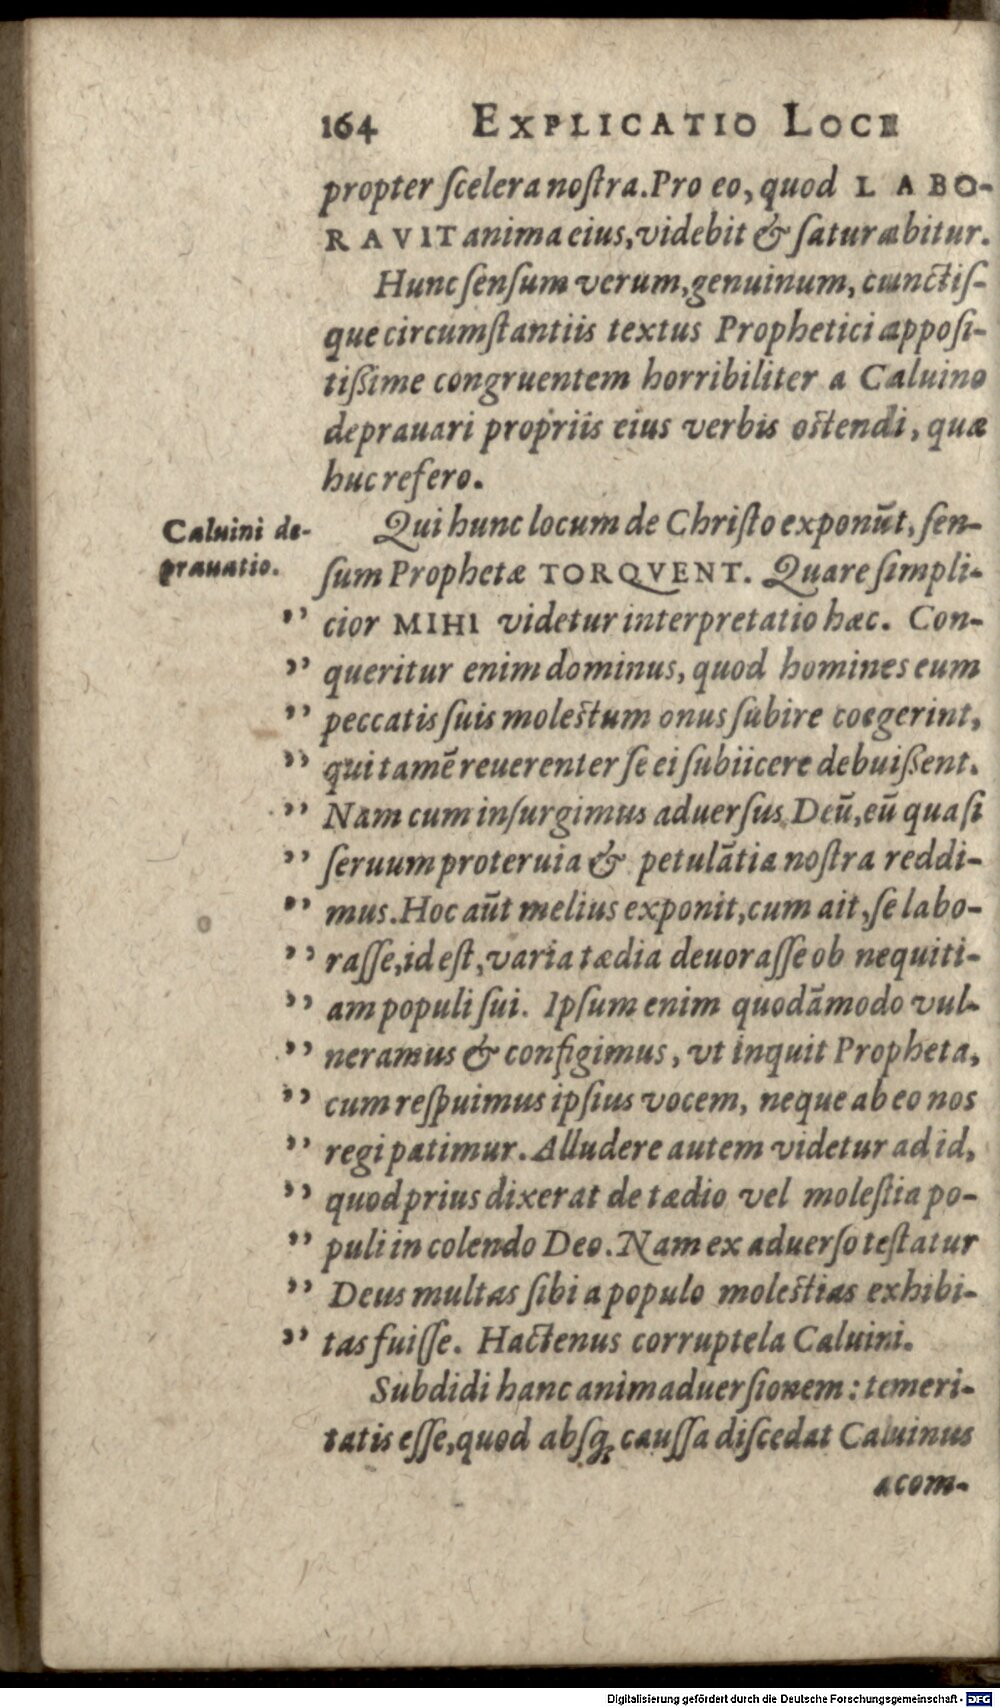 164 EXPLICATIO LOCI
propter ſcelera noſtra. Pro eo, quod LABO-
RAVIT anima eius, videbit & ſaturabitur.
Hunc ſenſum verum, genuinum, cunctiſ-
que circumſtantiis textus Prophetici appoſi-
tißime congruentem horribiliter a Caluino
deprauari propriis eius verbis oſtendi, quæ
huc refero.
Caluini de-
prauatio.
Qui hunc locum de Chriſto exponūt, ſen-
ſum Prophetæ TORQVENT. Quare ſimpli-
" cior MIHI videtur interpretatio hæc. Con-
" queritur enim dominus, quod homines eum
" peccatis ſuis moleſtum onus ſubire coegerint,
" qui tamē reuerenter ſe ei ſubiicere debuißent.
" Nam cum inſurgimus aduerſus Deū, eū quaſi
" ſeruum proteruia & petulātia noſtra reddi-
" mus. Hoc aūt melius exponit, cum ait, ſe labo-
" raſſe, id eſt, varia tædia deuoraſſe ob nequiti-
" am populi ſui. Ipſum enim quodāmodo vul-
" neramus & configimus, vt inquit Propheta,
" cum reſpuimus ipſius vocem, neque ab eo nos
" regi patimur. Alludere autem videtur ad id,
" quod prius dixerat de tædio vel moleſtia po-
" puli in colendo Deo. Nam ex aduerſo teſtatur
" Deus multas ſibi a populo moleſtias exhibi-
" tas fuiſſe. Hactenus corruptela Caluini.
Subdidi hanc animaduerſionem: temeri-
tatis eſſe, quod abſq; cauſſa diſcedat Caluinus
a com-
Digitalisierung gefördert durch die Deutsche Forschungsgemeinschaft - DFG